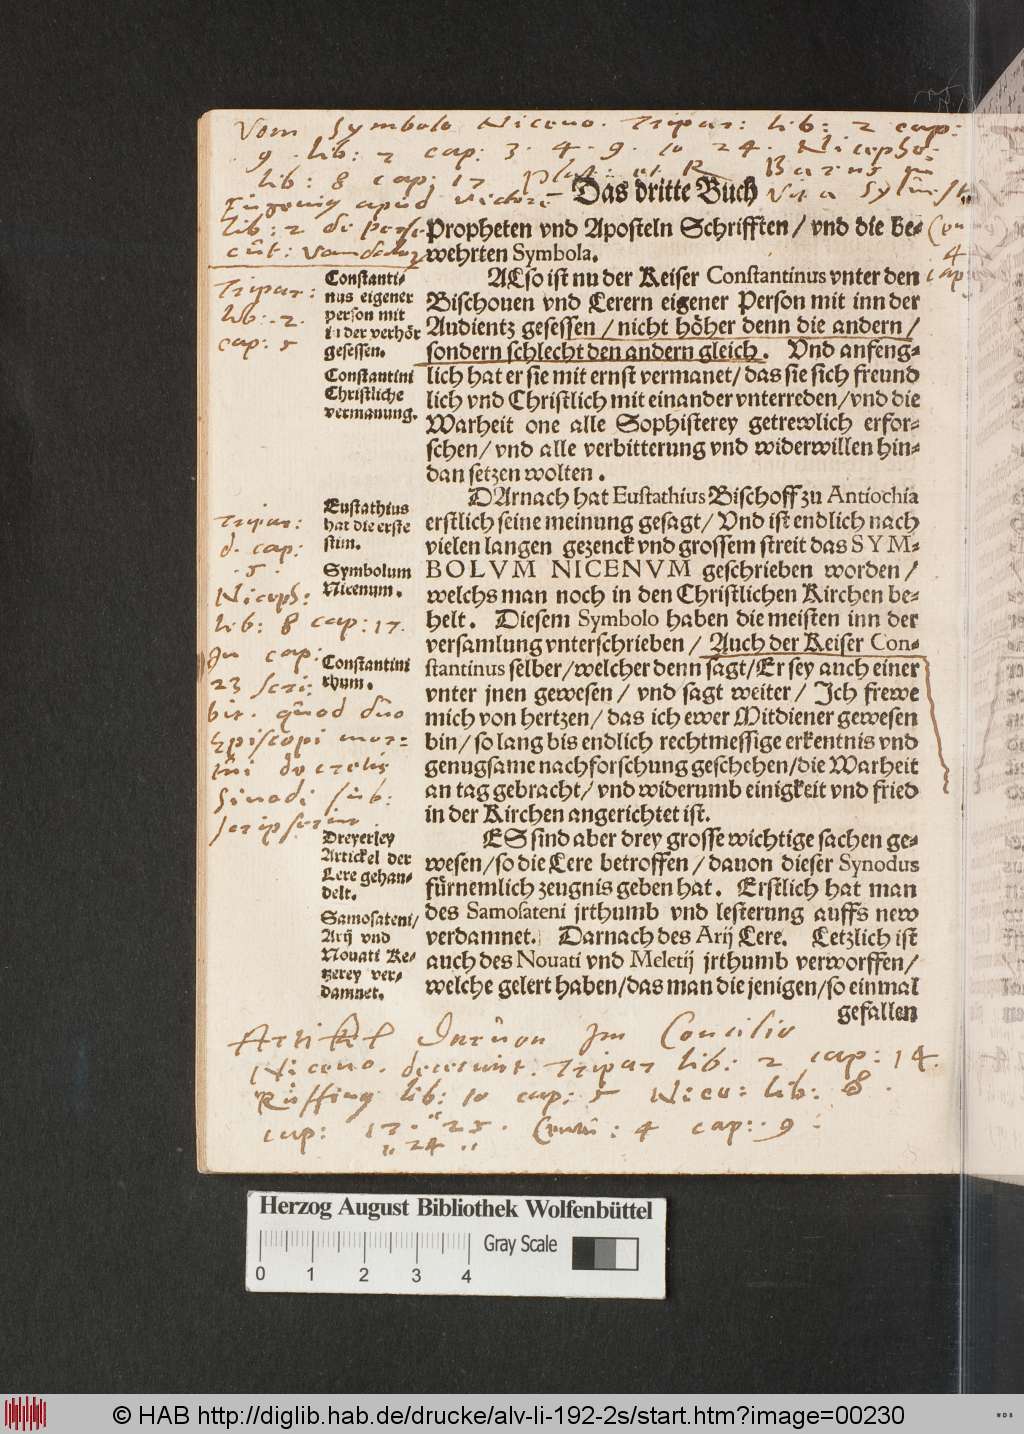 Vom Symbolo Niceno. Tripar: lib: 2 cap:
9. lib: 2 cap: 3. 4. 9. 10 24. Nicepho:
lib: 8 cap: 17 Barns
Vita Sylvest
Eugenius apud Victore
lib: 2 de perse
cut: Vandalor
4
cap
Das dritte Buch
Propheten vnd Aposteln Schrifften / vnd die be⸗
wehrten Symbola.
ALso ist nu der Keiser Constantinus vnter den
Bischouen vnd Lerern eigener Person mit inn der
Audientz gesessen / nicht höher denn die andern /
sondern schlecht den andern gleich. Vnd anfeng⸗
lich hat er sie mit ernst vermanet / das sie sich freund
lich vnd Christlich mit einander vnterreden / vnd die
Warheit one alle Sophisterey getrewlich erfor⸗
schen / vnd alle verbitterung vnd widerwillen hin⸗
dan setzen wolten.
DArnach hat Eustathius Bischoff zu Antiochia
erstlich seine meinung gesagt / Vnd ist endlich nach
vielen langen gezenck vnd grossem streit das SYM⸗
BOLVM NICENVM geschrieben worden /
welchs man noch in den Christlichen Kirchen be⸗
helt. Diesem Symbolo haben die meisten inn der
versamlung vnterschrieben / Auch der Keiser Con⸗
stantinus selber / welcher denn sagt / Er sey auch einer
vnter jnen gewesen / vnd sagt weiter / Ich frewe
mich von hertzen / das ich ewer Mitdiener gewesen
bin / so lang bis endlich rechtmessige erkentnis vnd
genugsame nachforschung geschehen / die Warheit
an tag gebracht / vnd widerumb einigkeit vnd fried
in der Kirchen angerichtet ist.
ES sind aber drey grosse wichtige sachen ge⸗
wesen / so die Lere betroffen / dauon dieser Synodus
fürnemlich zeugnis geben hat. Erstlich hat man
des Samosateni jrthumb vnd lesterung auffs new
verdamnet. Darnach des Arij Lere. Letzlich ist
auch des Nouati vnd Meletij jrthumb verworffen /
welche gelert haben / das man die jenigen / so einmal
gefallen
Constanti⸗
nus eigener
person mit
in der verhör
gesessen.
Constantini
Christliche
vermanung.
Eustathius
hat die erste
stim.
Symbolum
Nicenum.
Constantini
rhum.
Dreyerley
Artickel der
Lere gehan⸗
delt.
Samosateni /
Arij vnd
Nouati Ke⸗
tzerey ver⸗
damnet.
Tripar:
lib: 2.
cap: 5
Tripar:
d. cap:
5.
Niceph:
lib: 8 cap: 17.
In cap:
23 scri:
bit. quod duo
Episcopi mor⸗
tui decretis
Sinodi sub:
scripserint.
Artikel Im Concilio
Niceno. decreuit. Tripar lib: 2 cap: 14.
Ruffinus lib: 10 cap: 5 Nice: lib: 8.
cap: 17. 25. 4 cap: 9:
24
Herzog August Bibliothek Wolfenbüttel
Gray Scale
0 1 2 3 4
© HAB http://diglib.hab.de/drucke/alv-li-192-2s/start.htm?image=00230